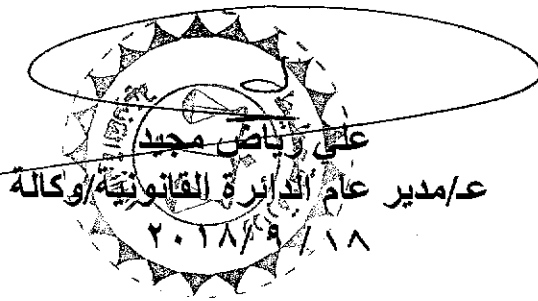 علي رياض مجيد
عـ/مدير عام الدائرة القانونية/وكالة
١٨ / ٩ /٢٠١٨